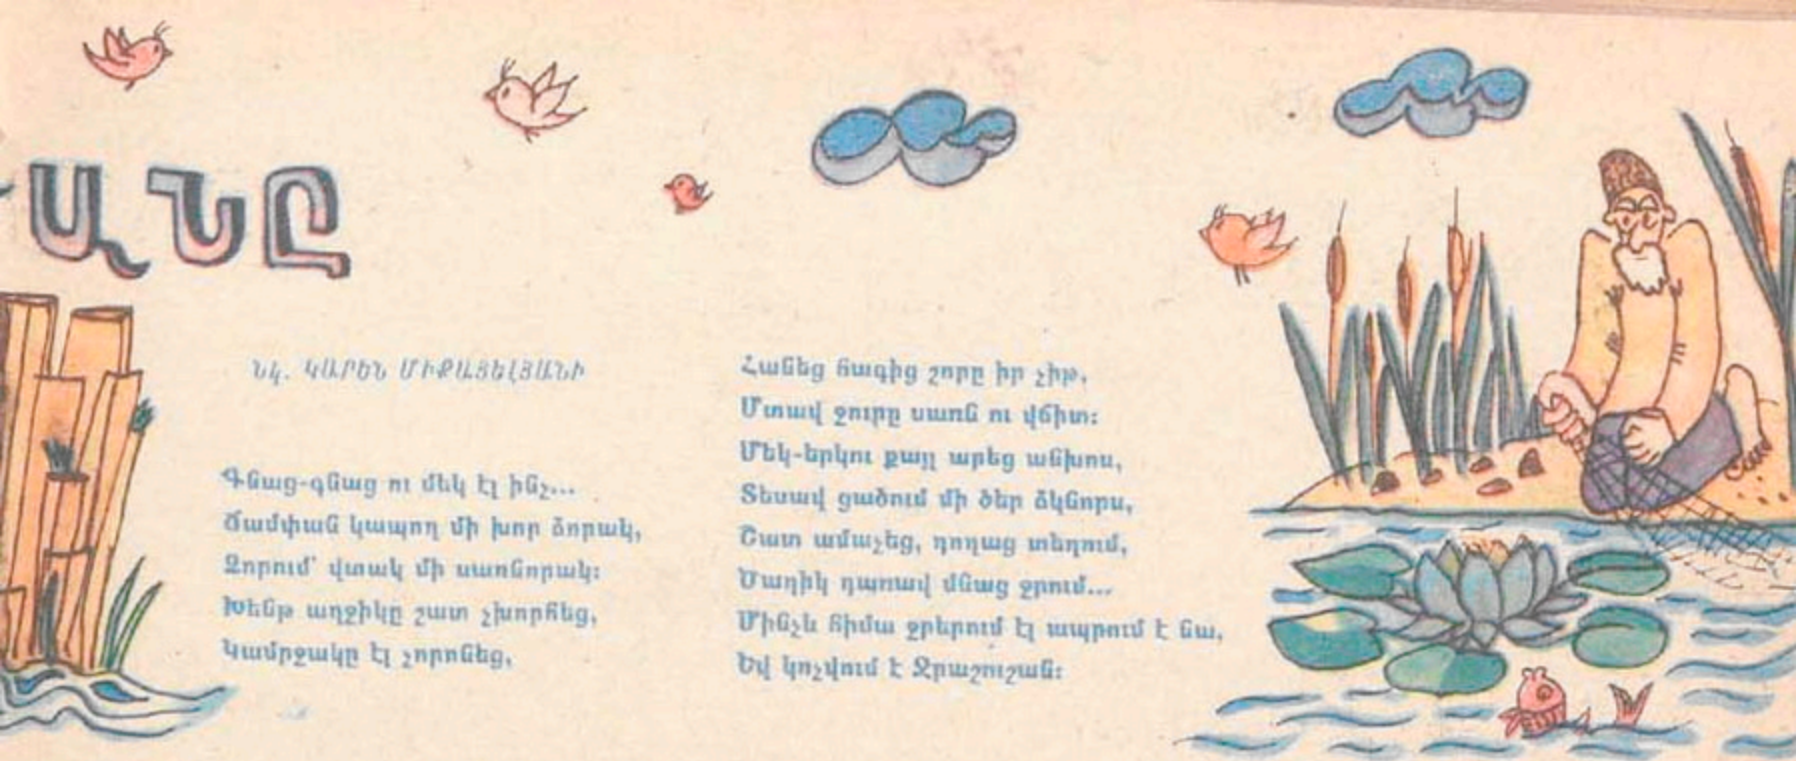 ԱՆԸ
Նկ. ԿԱՐԵՆ ՄԻՔԱՅԵԼՅԱՆԻ
Գնաց-գնաց ու մեկ էլ ինչ...
Ճամփան կապող մի խոր ձորակ,
Ձորում՝ վտակ մի սառնորակ։
Խենթ աղջիկը շատ չխորհեց,
Կամրջակը էլ չորոնեց,
Հանեց հագից շորը իր չիթ,
Մտավ ջուրը սառն ու վճիտ։
Մեկ-երկու քայլ արեց անխոս,
Տեսավ ցածում մի ծեր ձկնորս,
Շատ ամաչեց, դողաց տեղում,
Ծաղիկ դառավ մնաց ջրում...
Մինչև հիմա ջրերում էլ ապրում է նա,
Եվ կոչվում է Ջրաշուշան։